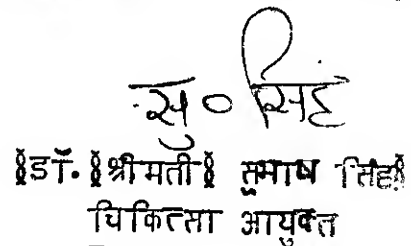 सु० सिंह
§डॉ.§श्रीमती§ सुभाष सिंह§
चिकित्सा आयुक्त